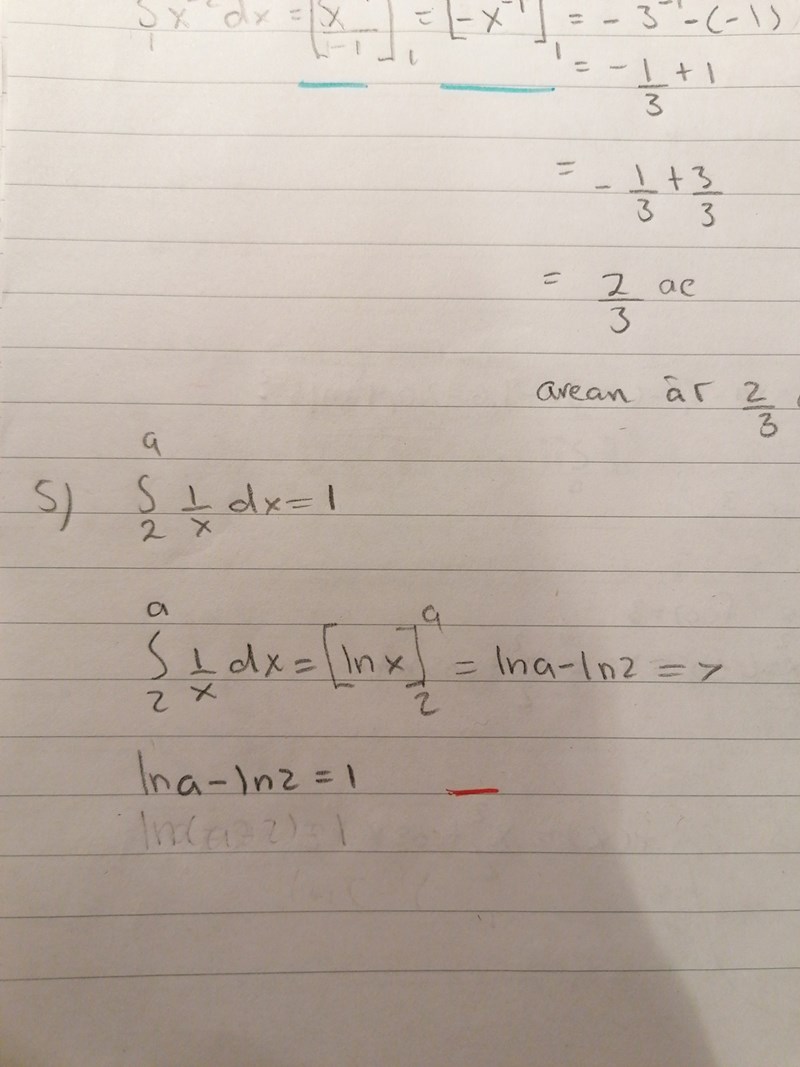 ∫ x⁻² dx = [x⁻¹/-1]₁ = [-x⁻¹]₁ = -3⁻¹-(-1)
= -1/3 + 1
= -1/3 + 3/3
= 2/3 ae
arean är 2/3
5) ∫₂ᵃ 1/x dx = 1
∫₂ᵃ 1/x dx = [ln x]₂ᵃ = ln a - ln 2 =>
ln a - ln 2 = 1
ln(a-2) = 1